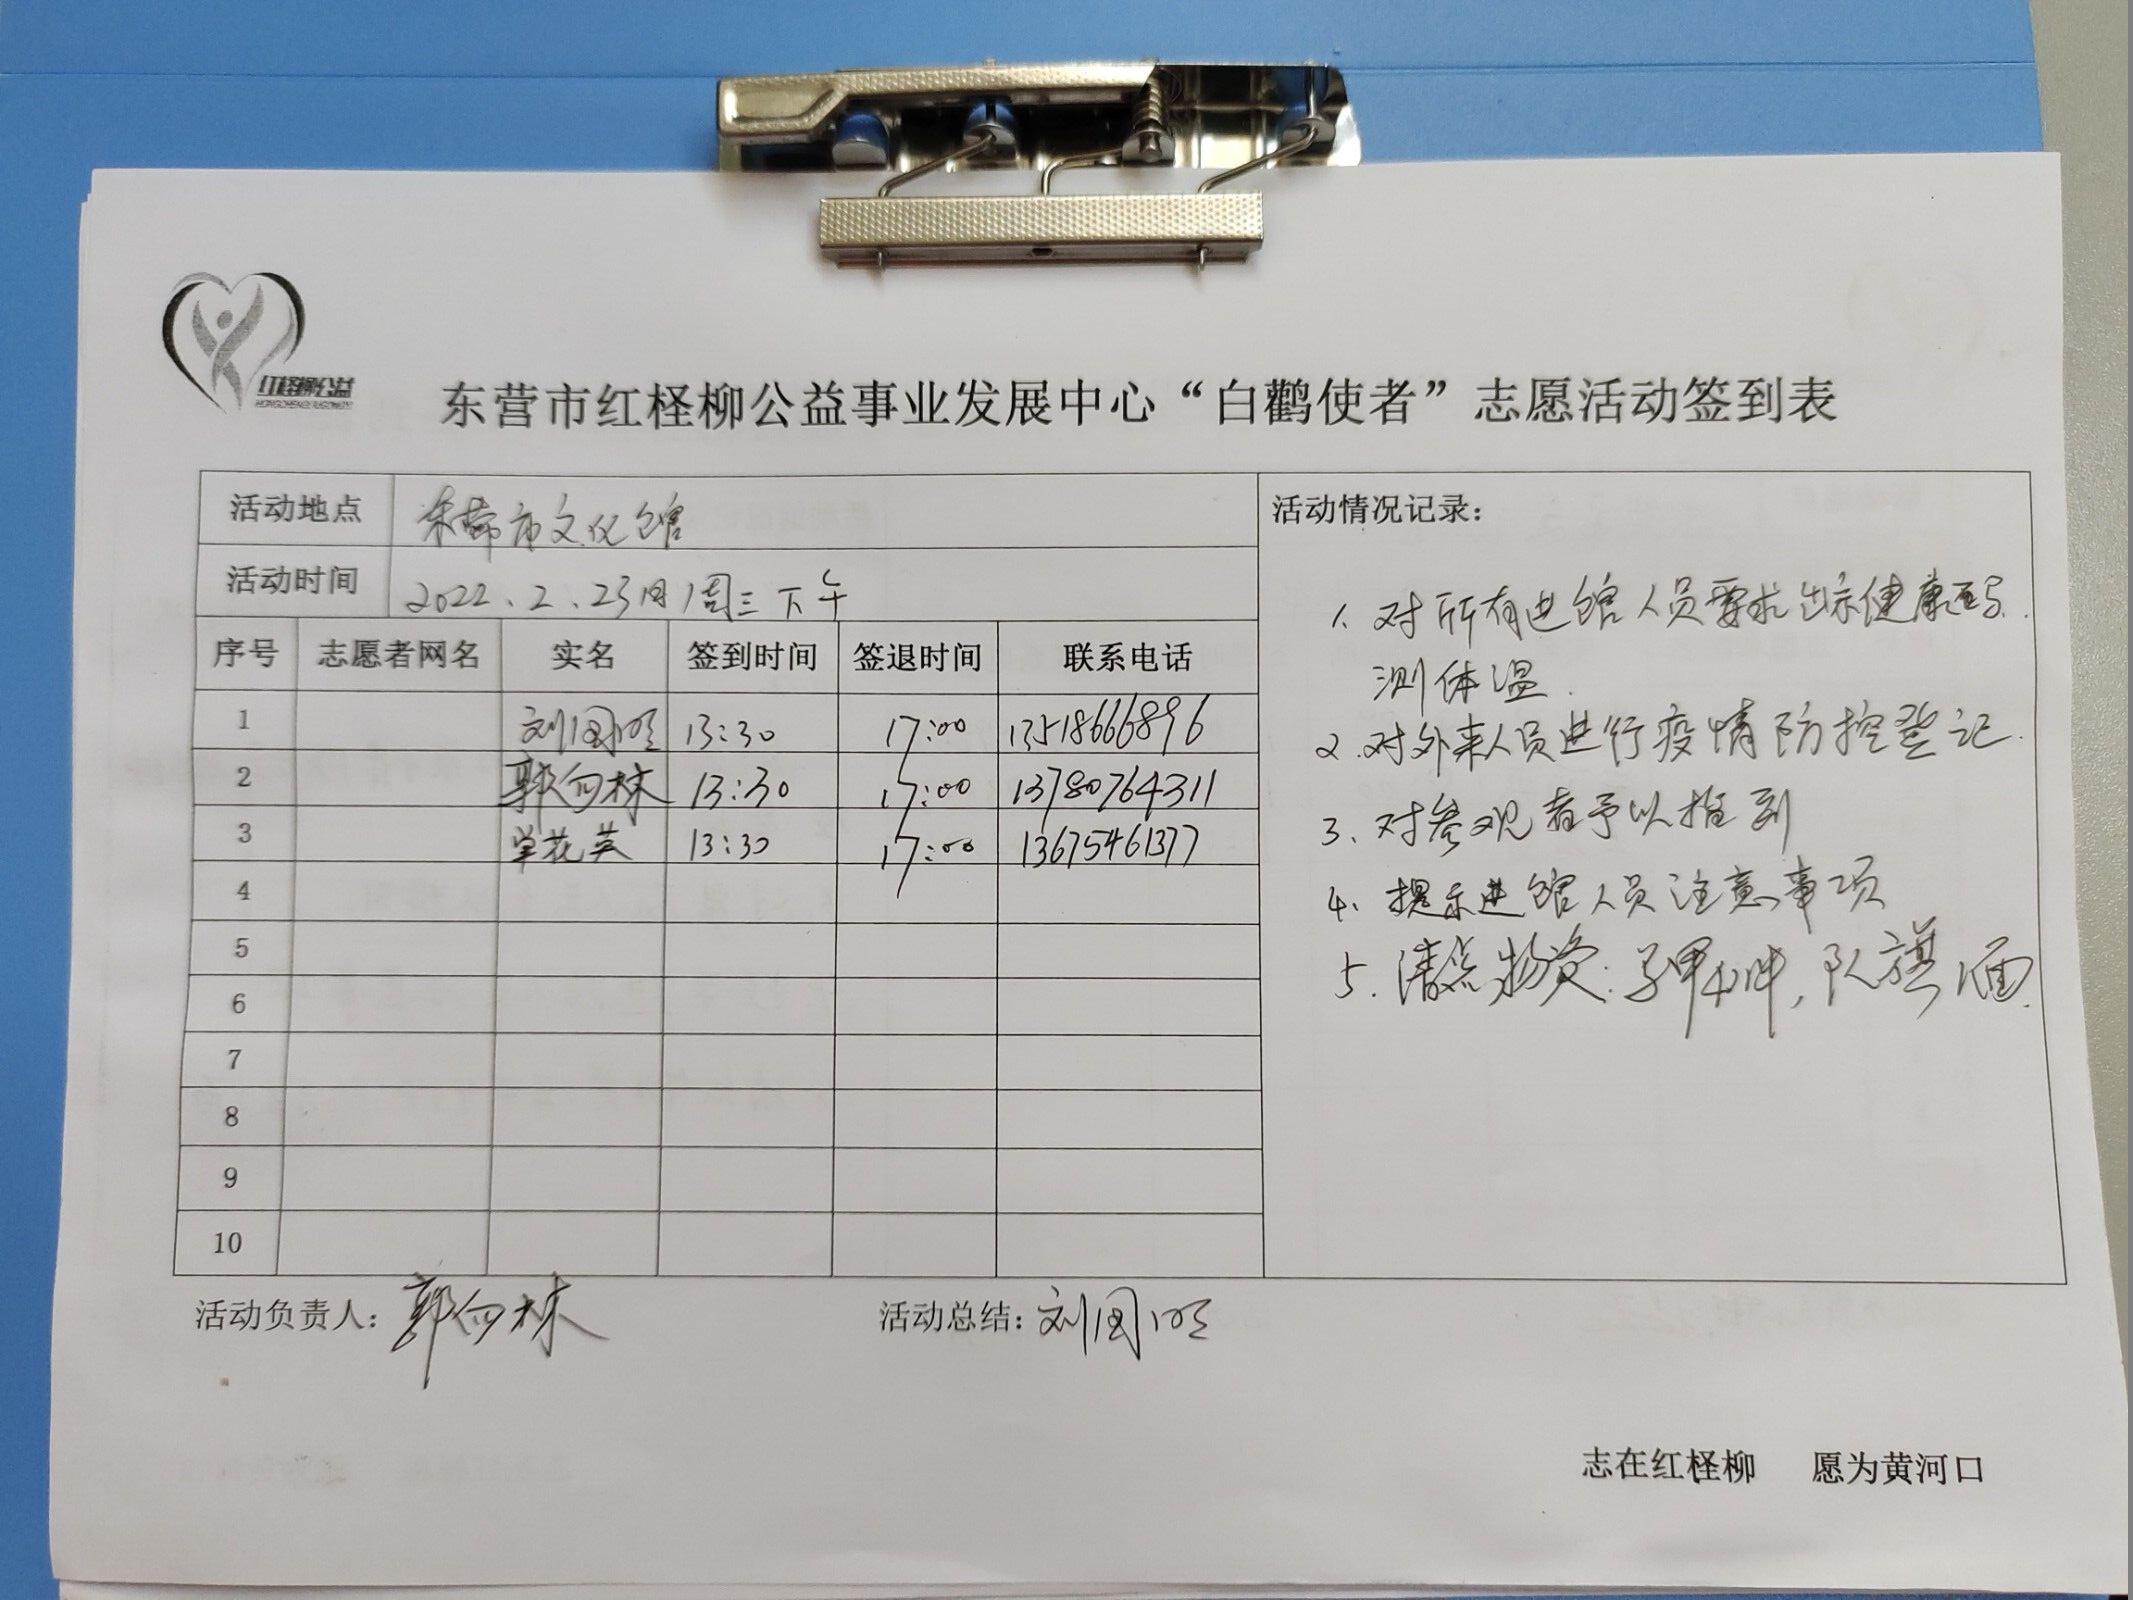 红柽柳公益
东营市红柽柳公益事业发展中心“白鹳使者”志愿活动签到表
活动地点 东营市文化馆
活动情况记录：
活动时间 2022.2.23日 周三下午
序号 志愿者网名 实名 签到时间 签退时间 联系电话
1 刘国明 13:30 17:00 13518666896
2 郭向林 13:30 17:00 13780764311
3 单花英 13:30 17:00 13675461377
4
5
6
7
8
9
10
1、对所有进馆人员要求出示健康码、
测体温.
2、对外来人员进行疫情防控登记
3、对参观者予以指到
4、提示进馆人员注意事项
5.清点物资：马甲4件，队旗1面.
活动负责人：郭向林
活动总结：刘国明
志在红柽柳 愿为黄河口